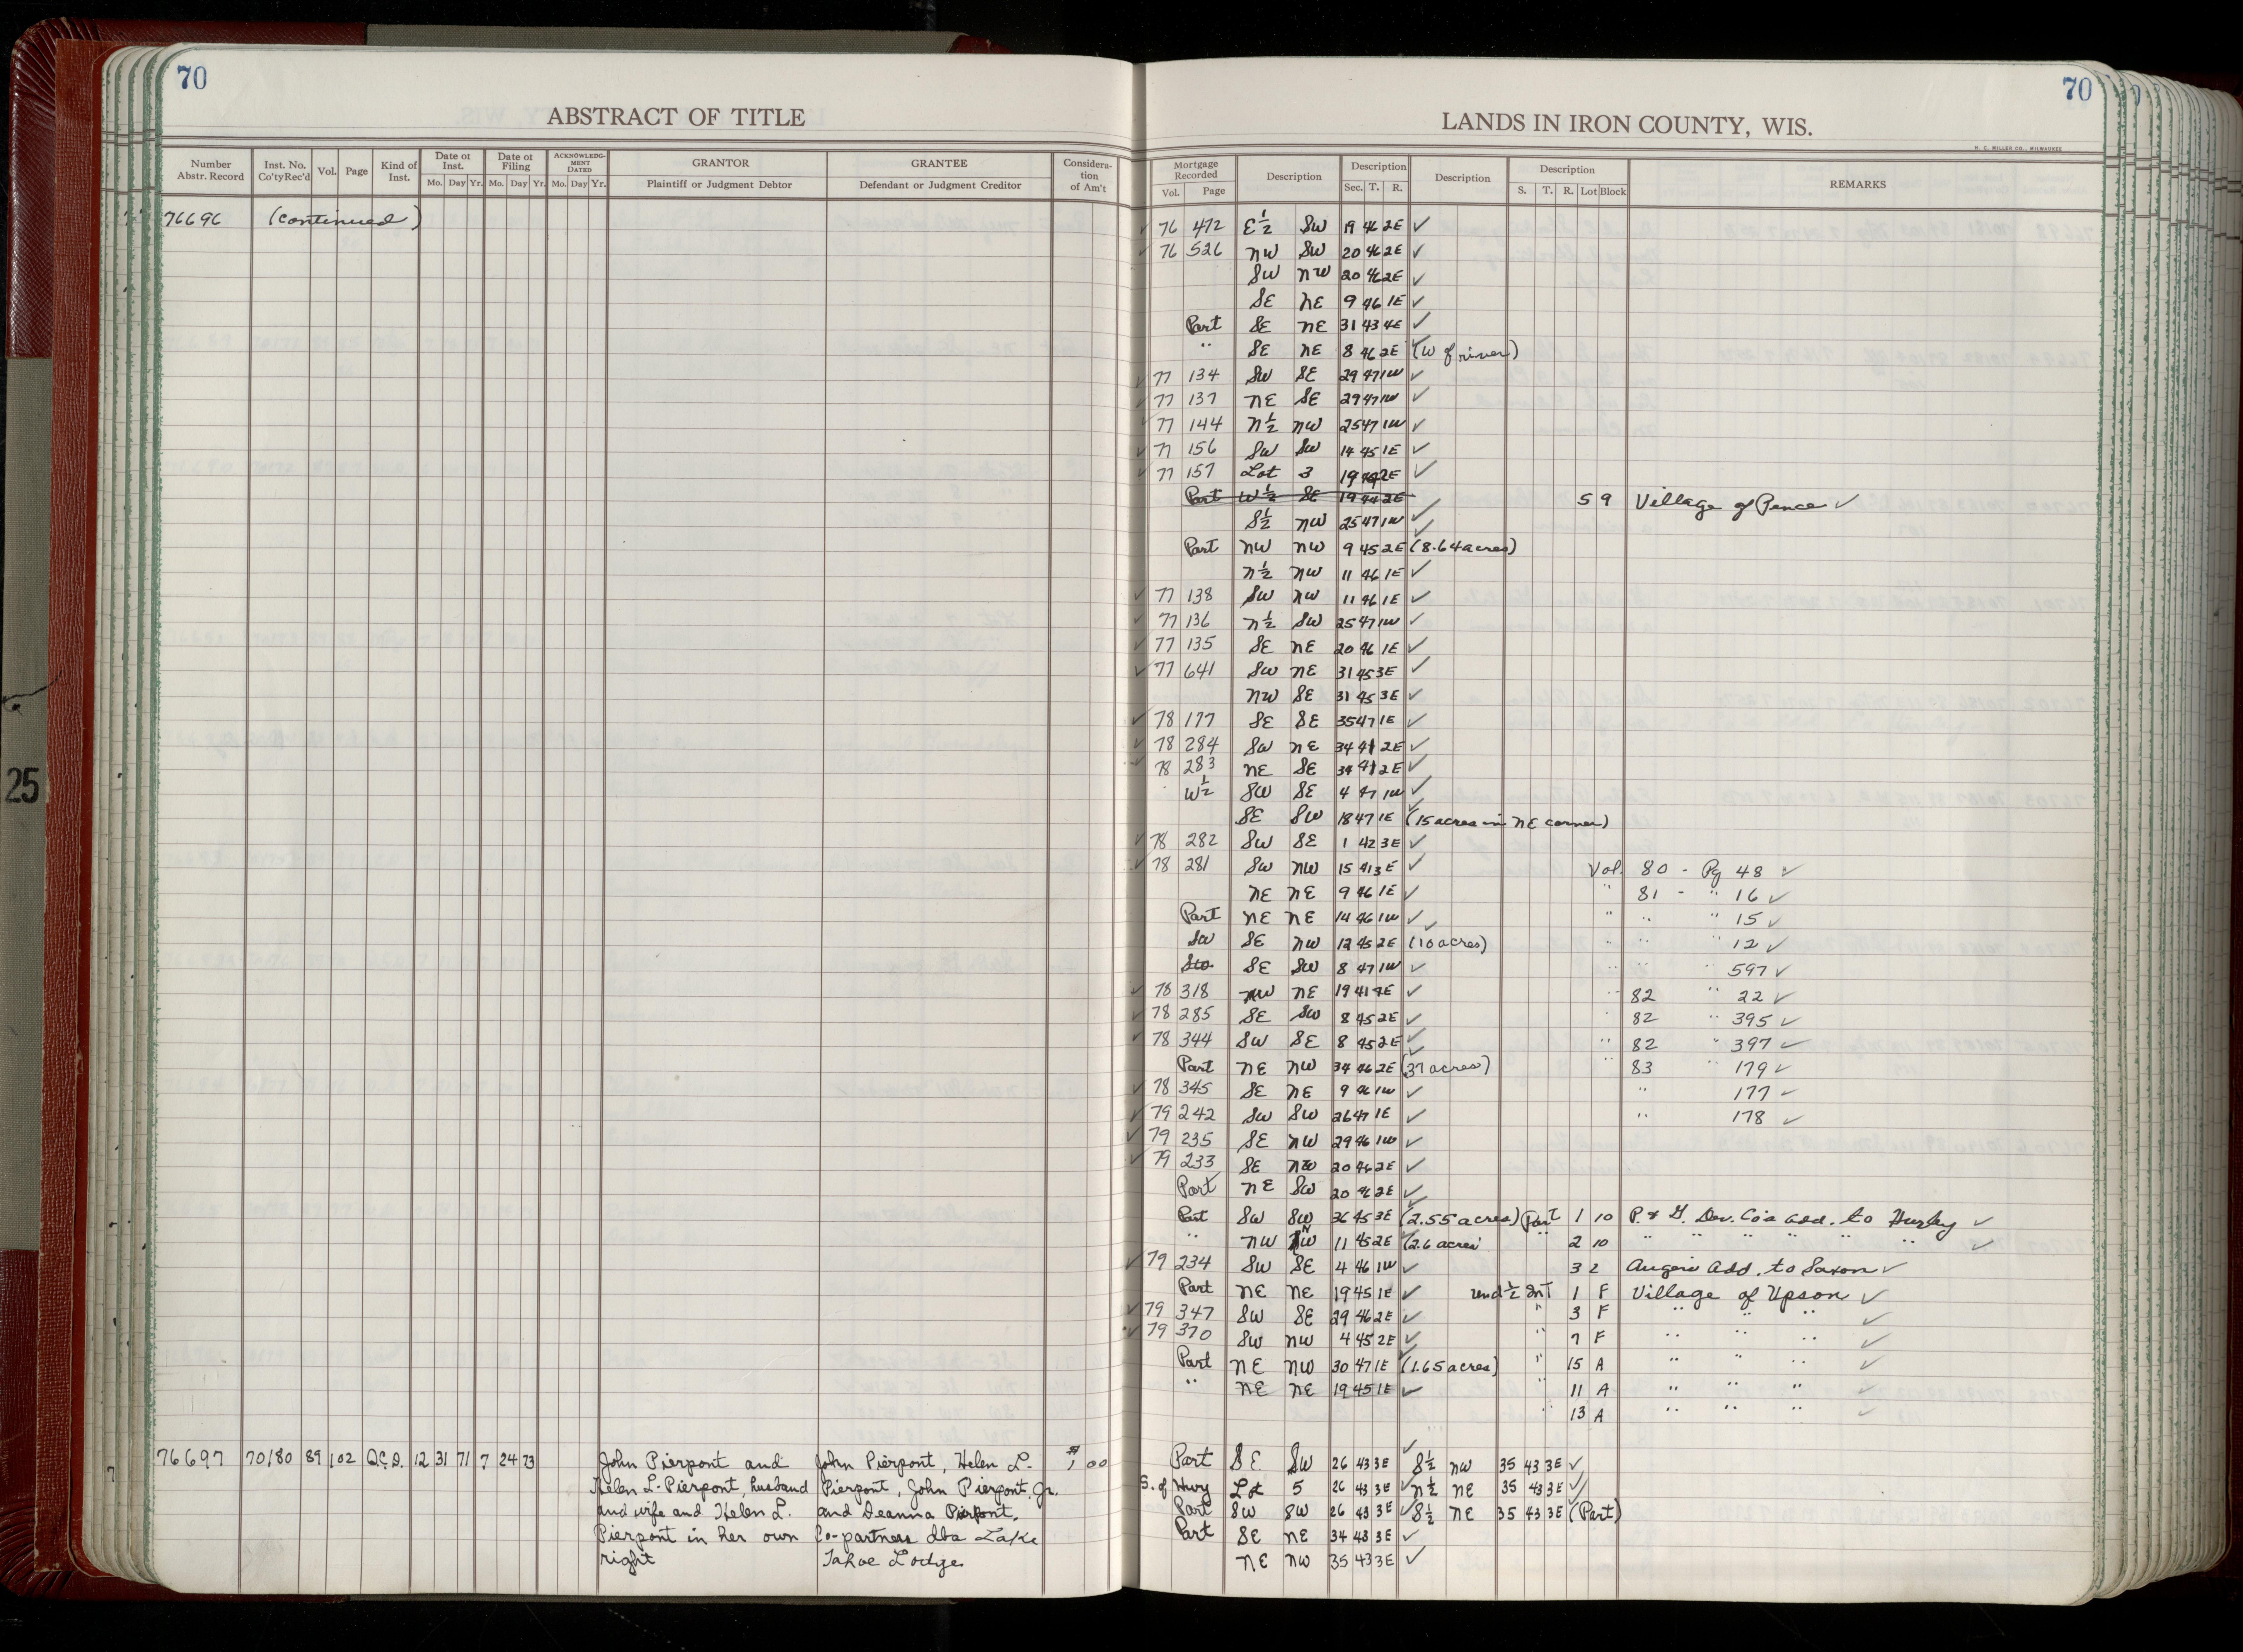 70
ABSTRACT OF TITLE
Number Abstr. Record Inst. No. Co'ty Rec'd Vol. Page Kind of Inst. Date of Inst. Mo. Day Yr. Date of Filing Mo. Day Yr. ACKNOWLEDGMENT DATED Mo. Day Yr. GRANTOR Plaintiff or Judgment Debtor GRANTEE Defendant or Judgment Creditor Consideration of Am't
76696 (continued)
76697 70180 89 102 Q.C.D. 12 31 71 7 24 73 John Pierpont and John Pierpont, Helen L. $1.00
Helen L. Pierpont, husband Pierpont, John Pierpont, Jr.
and wife and Helen L. and Deanna Pierpont,
Pierpont in her own Co-partners dba Lake
right Tahoe Lodge
25
70
LANDS IN IRON COUNTY, WIS.
H. C. MILLER CO., MILWAUKEE
Mortgage Recorded Vol. Page Description Description Sec. T. R. Description Description S. T. R. Lot Block REMARKS
76 472 E½ SW 19 46 2E ✓
76 526 NW SW 20 46 2E ✓
SW NW 20 46 2E ✓
SE NE 9 46 1E ✓
Part SE NE 31 43 4E ✓
" SE NE 8 46 2E (W of river)
77 134 SW SE 29 47 1W ✓
77 137 NE SE 29 47 1W ✓
77 144 N½ NW 25 47 1W ✓
77 156 SW SW 14 45 1E ✓
77 157 Lot 3 19 44 2E ✓
Part W½ SE 19 44 2E 5 9 Village of Pence ✓
S½ NW 25 47 1W ✓
Part NW NW 9 45 2E (8.64 acres)
N½ NW 11 46 1E ✓
77 138 SW NW 11 46 1E ✓
77 136 N½ SW 25 47 1W ✓
77 135 SE NE 20 46 1E ✓
77 641 SW NE 31 45 3E ✓
NW SE 31 45 3E ✓
78 177 SE SE 35 47 1E ✓
78 284 SW NE 34 41 2E ✓
78 283 NE SE 34 41 2E ✓
W½ SW SE 4 47 1W ✓
SE SW 18 47 1E (15 acres in NE corner)
78 282 SW SE 1 42 3E ✓
78 281 SW NW 15 41 3E ✓ Vol. 80 - Pg 48 ✓
NE NE 9 46 1E ✓ " 81 - " 16 ✓
Part NE NE 14 46 1W ✓ " " " 15 ✓
SW SE NW 12 45 2E (10 acres) " " " 12 ✓
SW SE SW 8 47 1W ✓ " " " 597 ✓
78 318 NW NE 19 41 4E ✓ " 82 " 22 ✓
78 285 SE SW 8 45 2E ✓ " 82 " 395 ✓
78 344 SW SE 8 45 2E ✓ " 82 " 397 ✓
Part NE NW 34 46 2E (37 acres) " 83 " 179 ✓
78 345 SE NE 9 46 1W ✓ " 177 ✓
79 242 SW SW 26 47 1E ✓ " 178 ✓
79 235 SE NW 29 46 1W ✓
79 233 SE NW 20 46 2E ✓
Part NE SW 20 46 2E ✓
Part SW SW 36 45 3E (2.55 acres) Part 1 10 P. & G. Dev. Co's Add. to Hurley ✓
" NW NW 11 45 2E (2.6 acres " 2 10 " " " " " " ✓
79 234 SW SE 4 46 1W ✓ 3 2 Add. to Saxon ✓
Part NE NE 19 45 1E ✓ und ½ Int 1 F Village of Upson ✓
79 347 SW SE 29 46 2E ✓ " 3 F " " " ✓
79 370 SW NW 4 45 2E ✓ " 7 F " " " ✓
Part NE NW 30 47 1E (1.65 acres) " 15 A " " " ✓
" NE NE 19 45 1E ✓ " 11 A " " " ✓
" 13 A " " " ✓
Part SE SW 26 43 3E ✓ S½ NW 35 43 3E ✓
S. of Hwy Lot 5 26 43 3E ✓ N½ NE 35 43 3E ✓
Part SW SW 26 43 3E ✓ S½ NE 35 43 3E (Part)
Part SE NE 34 43 3E ✓
NE NW 35 43 3E ✓